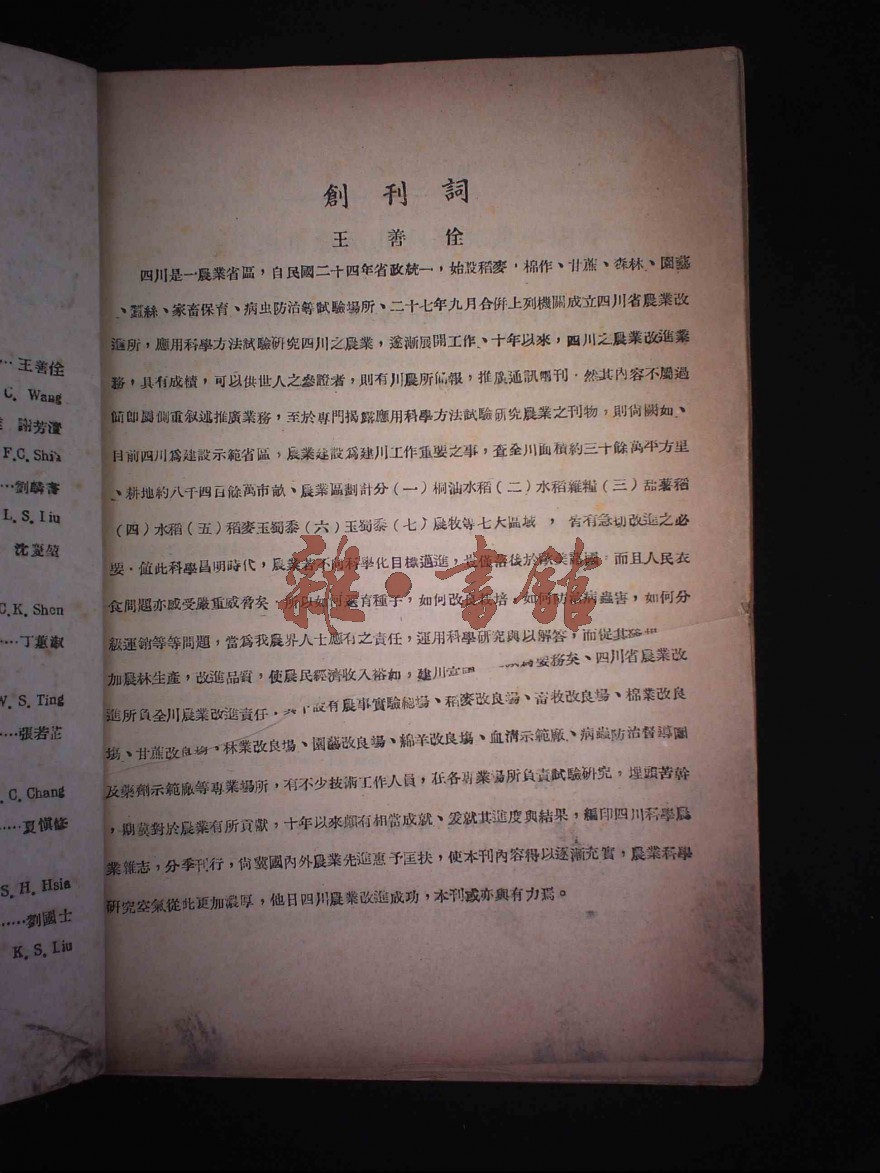 創刊詞
王善佺
四川是一農業省區，自民國二十四年省政統一，始設稻麥，棉作、甘蔗、森林、園藝
、蠶絲、家畜保育、病虫防治等試驗場所、二十七年九月合併上列機關成立四川省農業改
進所，應用科學方法試驗研究四川之農業，逐漸展開工作、十年以來，四川之農業改進業
務，具有成績，可以供世人之參證者，則有川農所簡報，推廣通訊專刊．然其內容不屬過
簡即屬側重叙述推廣業務，至於專門揭露應用科學方法試驗研究農業之刊物，則尙闕如、
目前四川爲建設示範省區，農業建設爲建川工作重要之事，查全川面積約三十餘萬平方里
、耕地約八千四百餘萬市畝、農業區劃計分（一）桐油水稻（二）水稻雜糧（三）甜薯稻
（四）水稻（五）稻麥玉蜀黍（六）玉蜀黍（七）農牧等七大區域，皆有急切改進之必
要．值此科學昌明時代，農業若不向科學化目標邁進，落後於歐美而且人民衣
食問題亦感受嚴重威脅矣．所以如何選育種子，如何改良栽培，如何防治病蟲害，如何分
級運銷等等問題，當爲我農界人士應有之責任，運用科學研究與以解答，而促其
加農林生產，改進品質，使農民經濟收入裕如，建川要務矣、四川省農業改
進所負全川農業改進責任．設有農事實驗總場、稻麥改良場、畜牧改良場、棉業改良
塲、甘蔗改良場、林業改良場、園藝改良場、綿羊改良場、血清示範廠、病蟲防治督導團
及藥劑示範廠等專業場所，有不少技術工作人員，在各專業場所負責試驗研究，埋頭苦幹
，期冀對於農業有所貢獻，十年以來頗有相當成就、爰就其進度與結果，編印四川科學農
業雜志，分季刊行，尙冀國內外農業先進惠予匡扶，使本刊內容得以逐漸充實，農業科學
研究空氣從此更加濃厚，他日四川農業改進成功，本刊或亦與有力焉。
雜·書館
…王善佺
C. Wang
謝芳澄
F.C. Shia
…劉麟書
L.S.Liu
C.K. Shen
…丁蕙淑
W. S. Ting
…張若芷
C. Chang
…夏愼修
S. H. Hsia
…劉國士
K. S. Liu